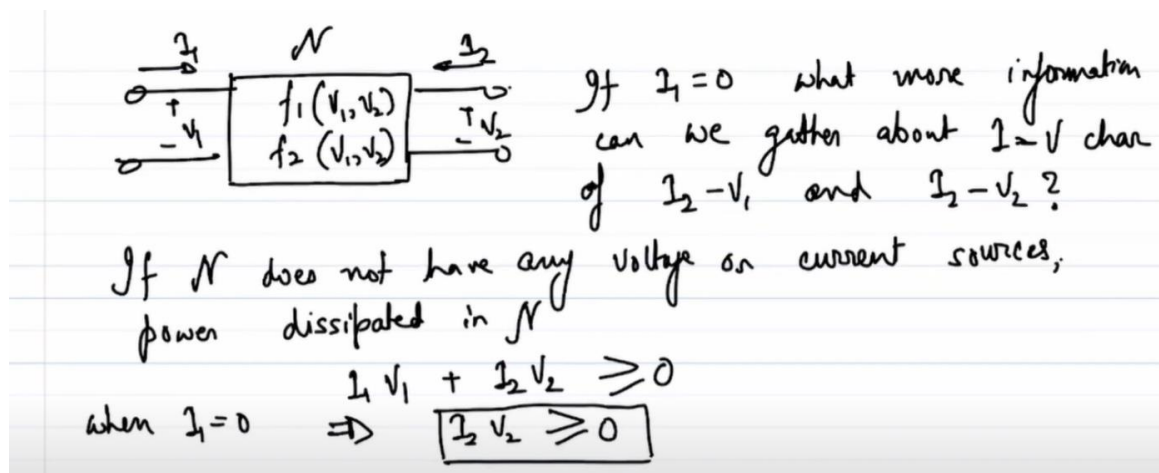 I₁ N I₂
+ V₁ -
f₁(V₁, V₂)
f₂(V₁, V₂)
+ V₂ -
If I₁ = 0 what more information
can we gather about I-V char
of I₂ - V₁ and I₂ - V₂?
If N does not have any voltage or current sources,
power dissipated in N
I₁ V₁ + I₂ V₂ ≥ 0
when I₁ = 0 ⇒ I₂ V₂ ≥ 0